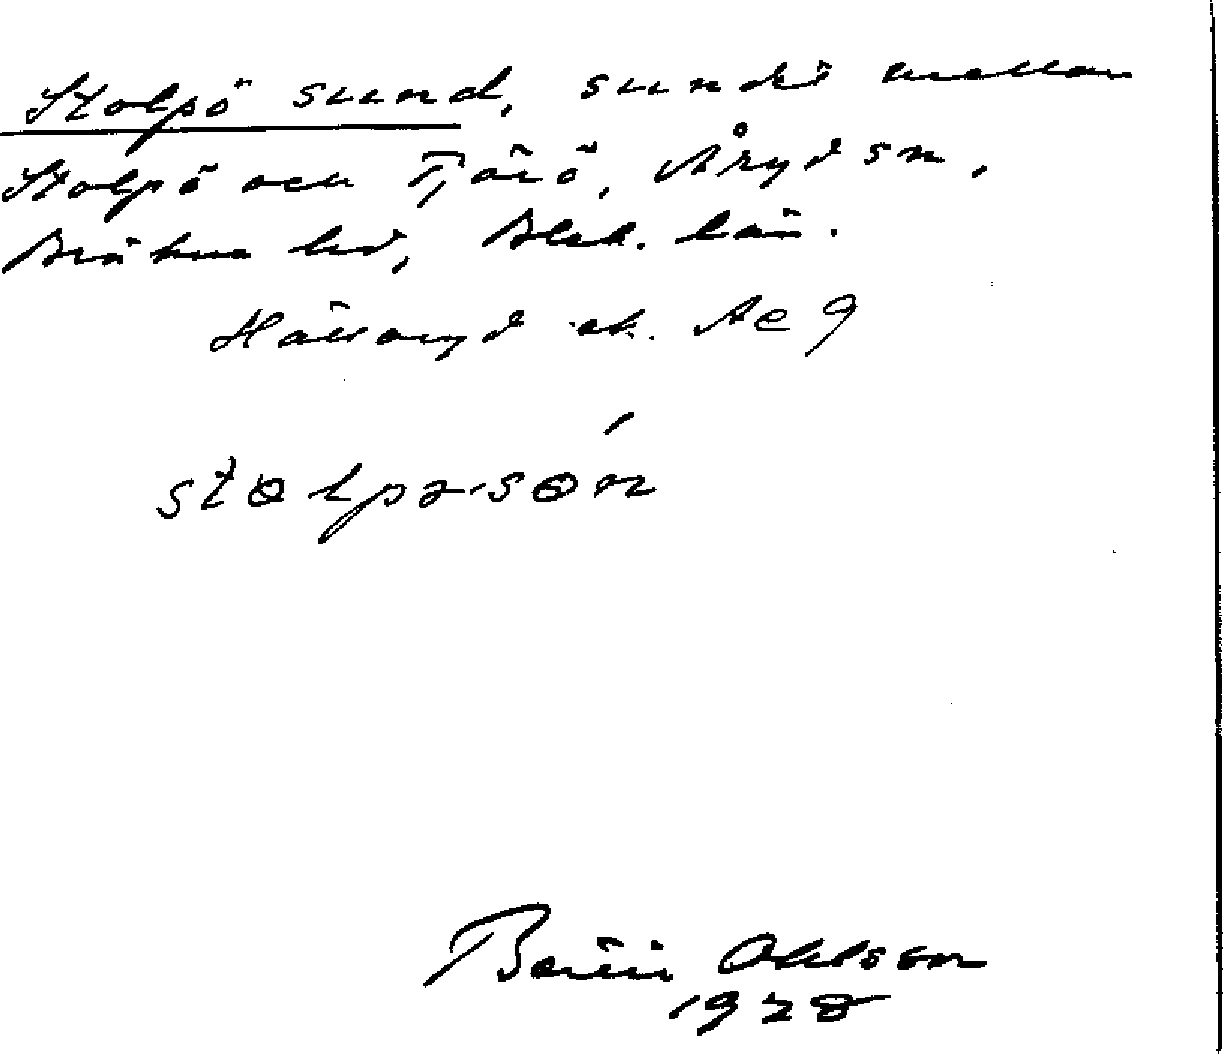 Stolpö sund, sundet mellan
Stolpö och Tjärö, Åryd sn,
Bräkne hd, Blek. län.
Hällaryd ek. Ae 9
stolpə-són
Bertil Ohlsson
1928